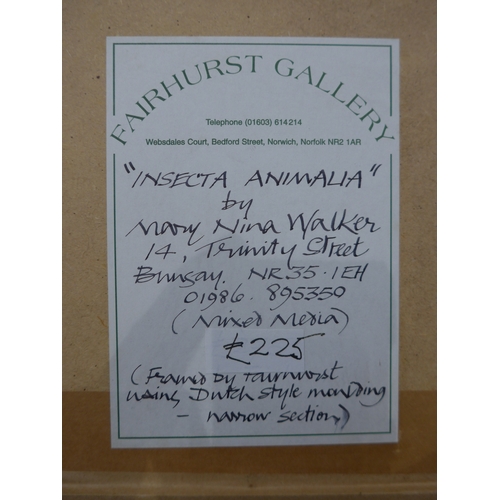 FAIRHURST GALLERY
Telephone (01603) 614214
Websdales Court, Bedford Street, Norwich, Norfolk NR2 1AR
"INSECTA ANIMALIA"
by
Mary Nina Walker
14, Trinity Street
Bungay. NR35.1EH
01986. 895350
(Mixed Media)
£225
(Framed by Fairhurst
using Dutch style moulding
– narrow section)